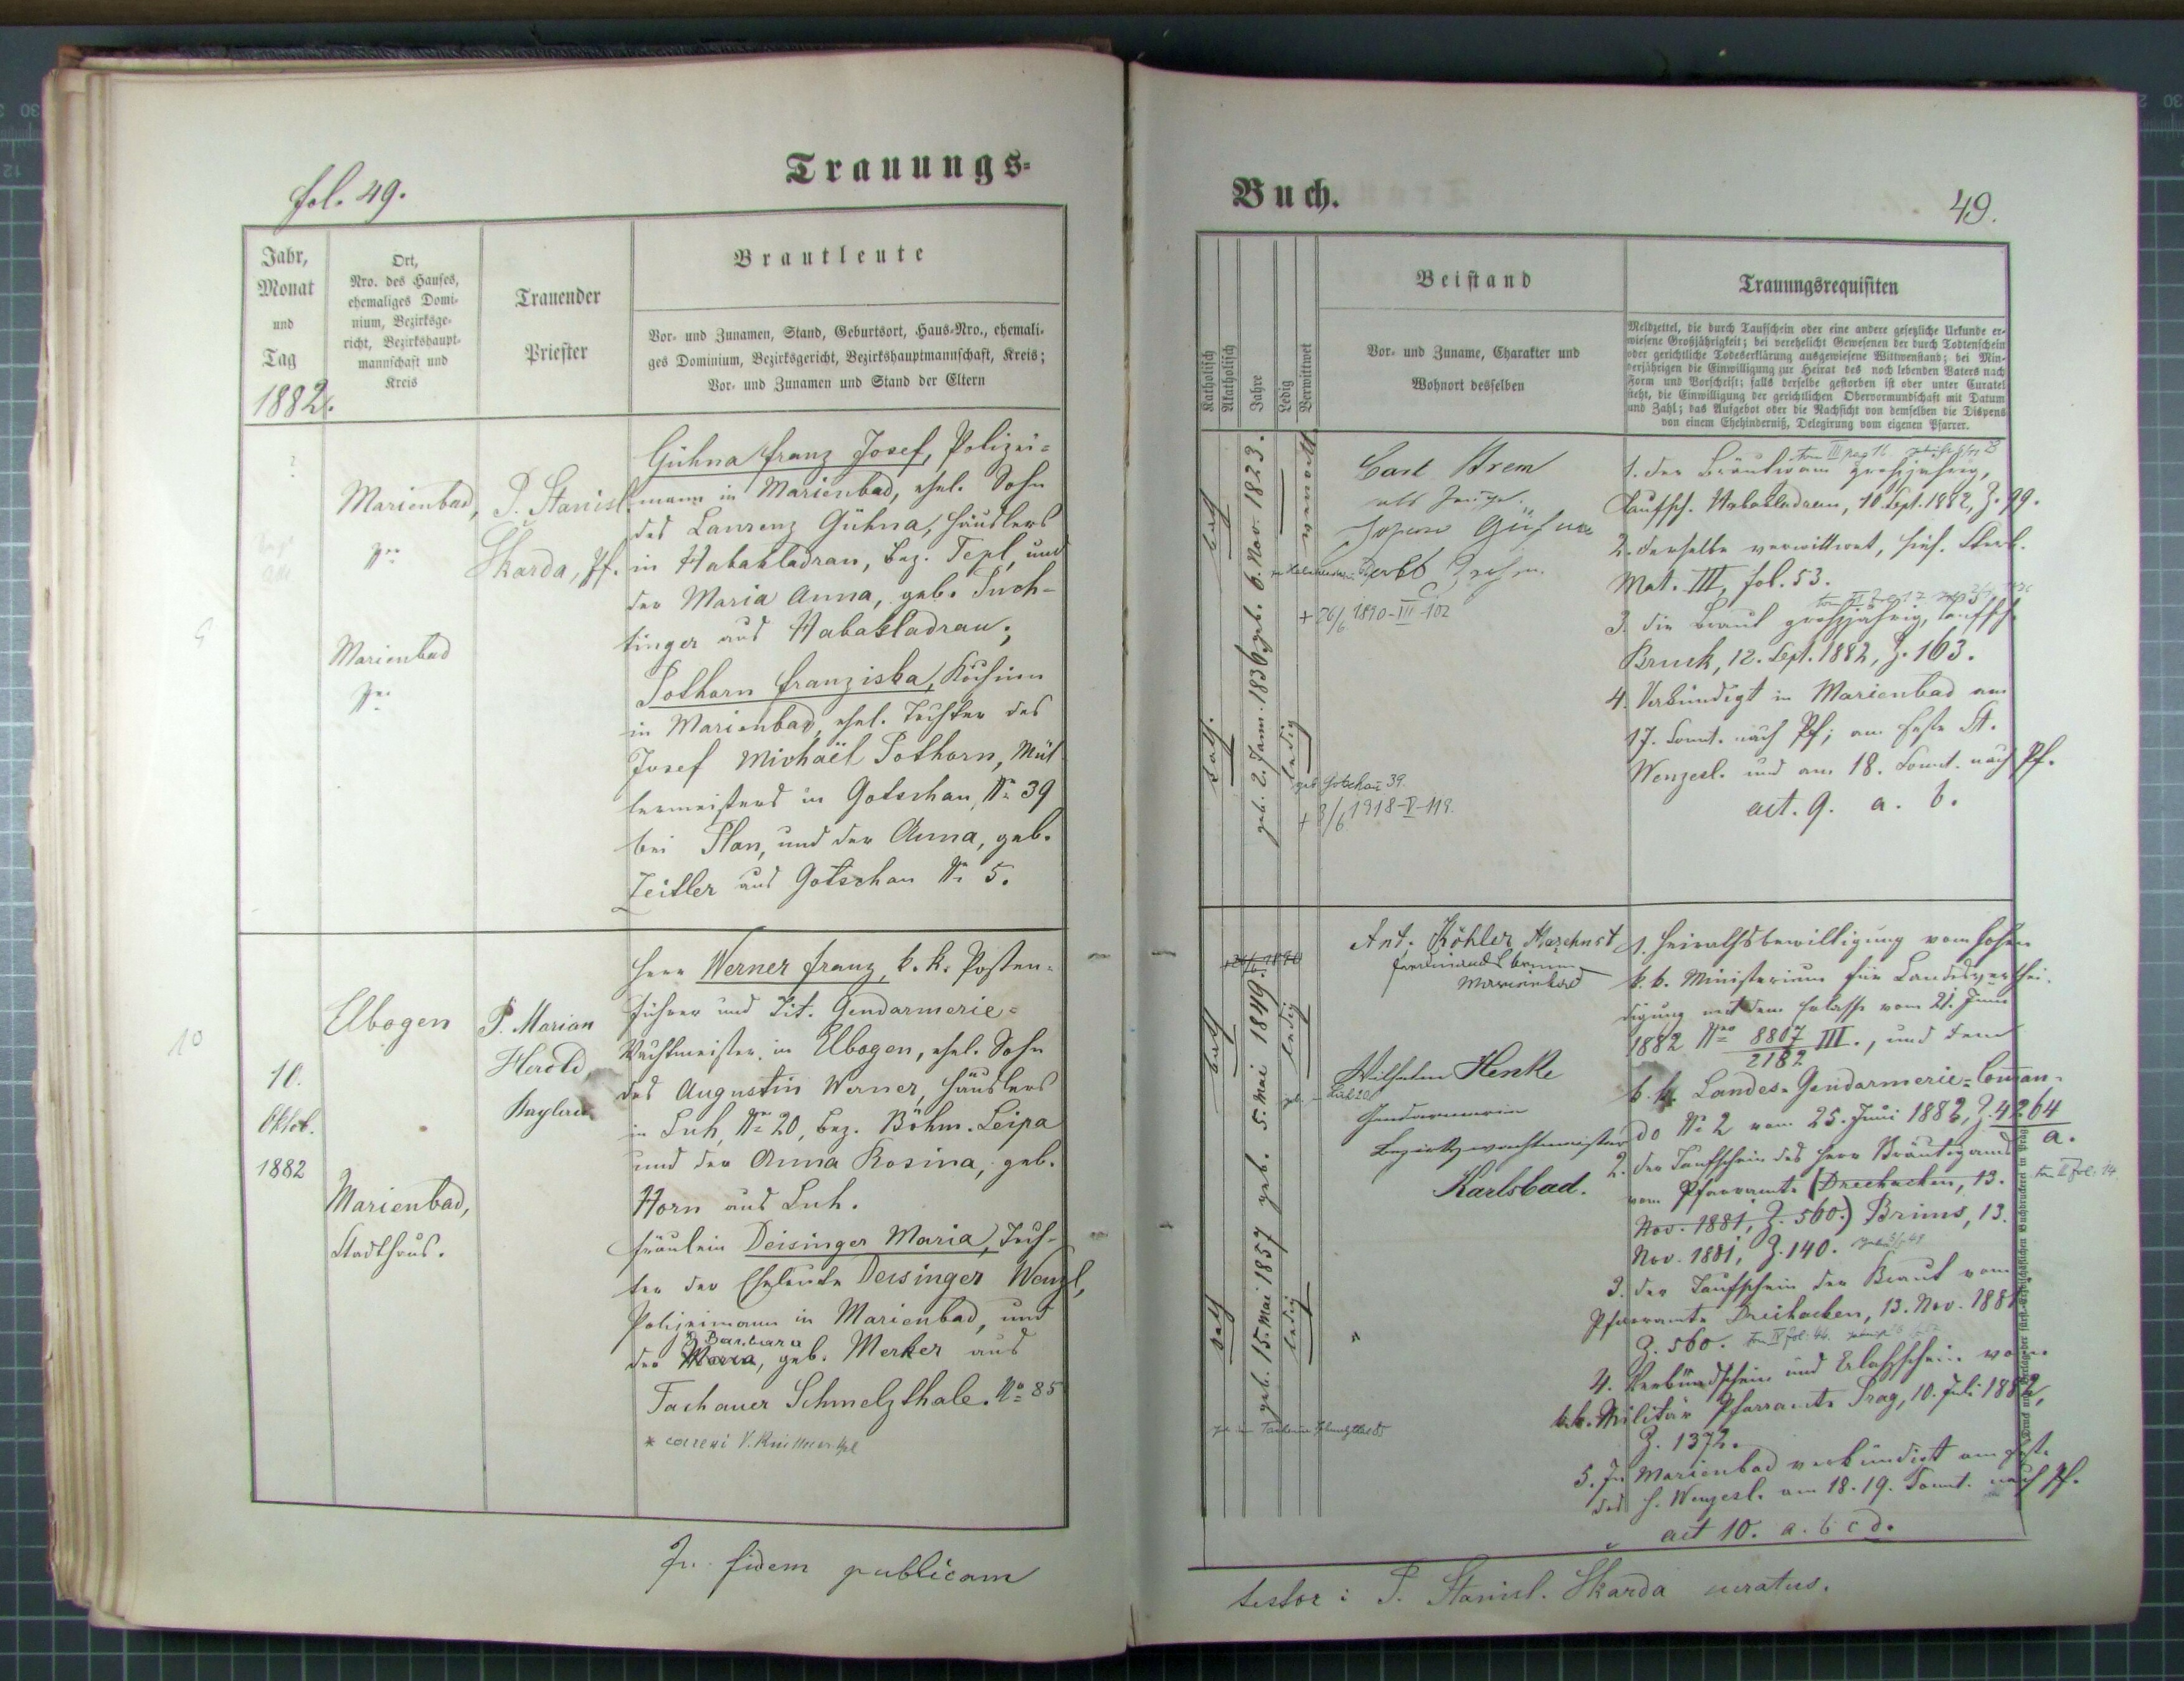 fol. 49.
Trauungs-
Jahr,
Monat
und
Tag
1882.
Ort,
Nro. des Hauses,
ehemaliges Domi-
nium, Bezirksge-
richt, Bezirkshaupt-
mannschaft und
Kreis
Trauender
Priester
Brautleute
Vor- und Zunamen, Stand, Geburtsort, Haus-Nro., ehemali-
ges Dominium, Bezirksgericht, Bezirkshauptmannschaft, Kreis;
Vor- und Zunamen und Stand der Eltern
?
9
Marienbad,
Marienbad
P. Stanisl.
Skarda, Pf.
Gühna Franz Josef, Polizei-
mann in Marienbad, ehel. Sohn
des Laurenz Gühna, Häuslers
in Habakladrau, bez. Tepl, und
der Maria Anna, geb. Tuch-
tinger aus Habakladrau;
Pothorn Franziska, Köchinn
in Marienbad, ehel. Tochter des
Josef Michaël Pothorn, Mül
lermeisters in Gotschau, Nr. 39
bei Plan, und der Anna, geb.
Zeitler aus Gotschau Nr. 5.
10
10.
Oktob.
1882
Elbogen
Marienbad,
Stadthaus.
P. Marian
Herold,
Kaplan
Herr Werner Franz, k. k. Posten-
führer und Tit. Gendarmerie-
Wachtmeister, in Elbogen, ehel. Sohn
des Augustin Werner, Häuslers
in Luh, Nr. 20, bez. Böhm. Leipa
und der Anna Rosina, geb.
Horn aus Luh.
Fräulein Deisinger Maria, Toch-
ter der Eheleute Deisinger Wenzl,
Polizeimann in Marienbad, und
Barbara
der Maria, geb. Merker aus
Tachauer Schmelzthale. No 85
In fidem publicam
Buch.
49.
Katholisch
Akatholisch
Jahre
Ledig
Verwittwet
Beistand
Vor- und Zuname, Charakter und
Wohnort desselben
Trauungsrequisiten
Meldzettel, die durch Taufschein oder eine andere gesetzliche Urkunde er-
wiesene Großjährigkeit; bei verehelicht Gewesenen der durch Todtenschein
oder gerichtliche Todeserklärung ausgewiesene Wittwenstand; bei Min-
derjährigen die Einwilligung zur Heirat des noch lebenden Vaters nach
Form und Vorschrift; falls derselbe gestorben ist oder unter Curatel
steht, die Einwilligung der gerichtlichen Obervormundschaft mit Datum
und Zahl; das Aufgebot oder die Nachsicht von demselben die Dispens
von einem Ehehinderniß, Delegirung vom eigenen Pfarrer.
kath
geb. 6. Nov. 1823.
verwittw.
Carl Krem
als Zeuge.
+ 26/6 1890-III-102
kath.
geb. 2. Jänn. 1836
ledig
geb Gotschau 39.
+ 3/6 1918-V-119.
1. der Bräutigam großjährig,
Taufsch. Habakladrau, 10. Sept. 1882, Z. 99.
2. derselbe verwittwet, hies. Sterb.
Mat. III, fol. 53.
3. die Braut großjährig, Taufsch.
Bruck, 12. Sept. 1882, Z. 163.
4. Verkündigt in Marienbad am
17. Sonnt. nach Pf; am Feste St.
Wenzesl. und am 18. Sonnt. nach Pf.
act. 9. a. b.
kath
geb. 5. Mai 1849.
ledig
Ant. Köhler
Marienbad
Wilhelm Henke
Gendarmerie
Bezirkswachtmeister
Karlsbad.
kath
geb. 15. Mai 1857
ledig
"
1. Heirathsbewilligung vom hohen
k. k. Ministerium für Landesverthei-
digung mit dem Erlasse vom 21. Juni
1882 Nro 8807/2182 III., und dem
k. k. Landes-Gendarmerie-Coman-
do Nr. 2 vom 25. Juni 1882, Z. 4264
a.
2. der Taufschein des Herr Bräutigams
vom Pfarramte (Dreihacken, 13.
tom II fol. 14
Nov. 1881, Z. 560.) Brims, 13.
Nov. 1881, Z. 140.
3. der Taufschein der Braut vom
Pfarramte Dreihacken, 13. Nov. 1881
Z. 560.
4. Verkündschein und Erlaßschein vom
k. k. Militär Pfarramte Prag, 10. Juli 1882,
Z. 1372.
5. In Marienbad verkündigt am Feste
des h. Wenzesl. am 18. 19. Sonnt. nach Pf.
act 10. a. b c d.
testor: P. Stanisl. Skarda curatus.